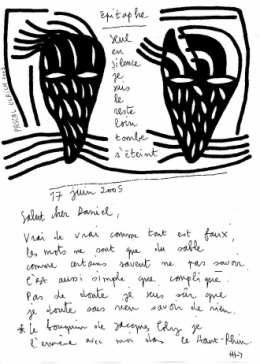 épitaphe
seul
en
silence
je
suis
le
reste
loin
tombe
s'éteint
PASCAL ULRICH 2005
17 juin 2005
Salut cher Daniel,
Vrai de vrai comme tout est faux,
les mots ne sont que du sable
comme certains savent ne pas savoir.
C'est aussi simple que compliqué.
Pas de doute je suis sûr que
je doute sans rien savoir de rien.
* le bouquin de Jacques je
l'emmène avec moi dans le Haut-Rhin